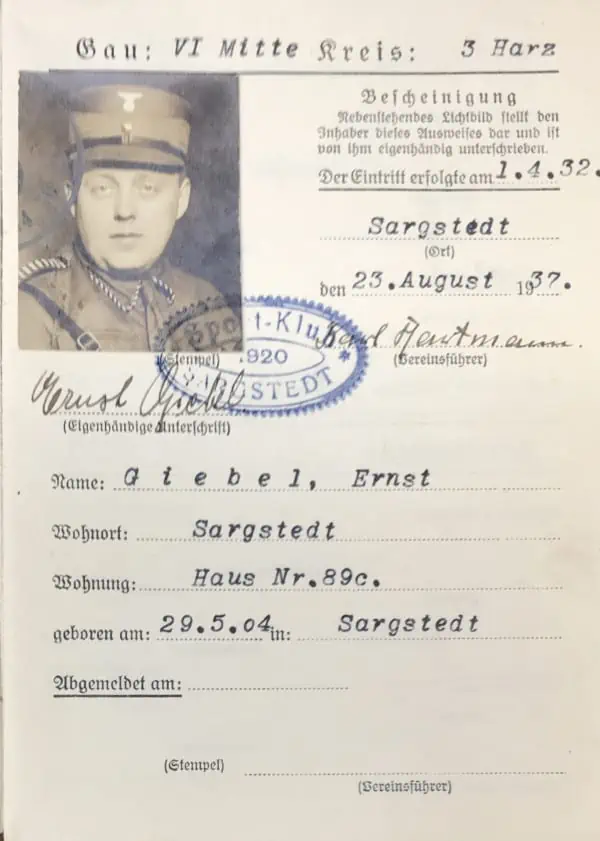 Gau: VI Mitte Kreis: 3 Harz
Bescheinigung
Nebenstehendes Lichtbild stellt den
Inhaber dieses Ausweises dar und ist
von ihm eigenhändig unterschrieben.
Der Eintritt erfolgte am 1.4.32.
Sargstedt
(Ort)
den 23. August 1937.
Sport-Klub
1920
SARGSTEDT
Karl Hartmann.
(Stempel)
(Vereinsführer)
Ernst Giebel
(Eigenhändige Unterschrift)
Name: G i e b e l, Ernst
Wohnort: Sargstedt
Wohnung: Haus Nr.89c.
geboren am: 29.5.04 in: Sargstedt
Abgemeldet am:
(Stempel)
(Vereinsführer)